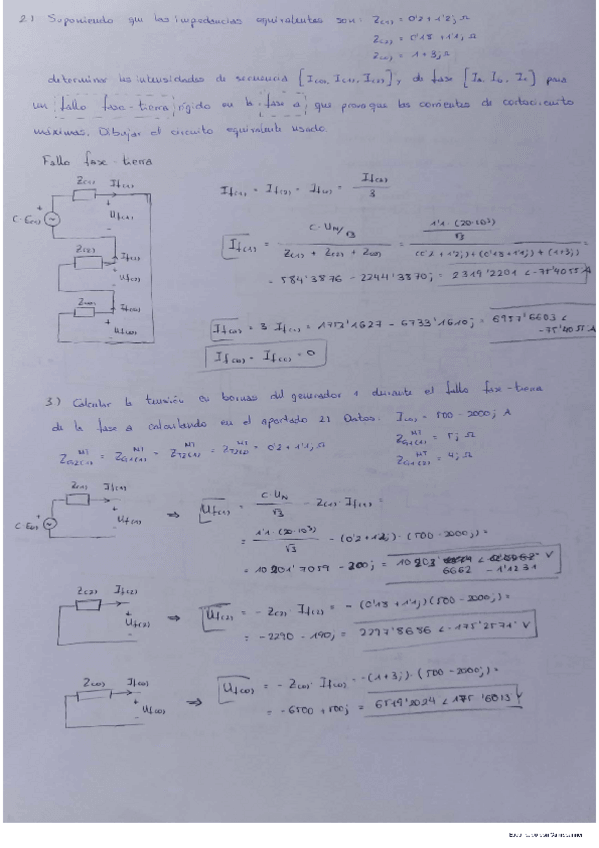 2.) Suponiendo que las impedancias equivalentes son: Z(1) = 0'2 + 1'2j Ω
Z(2) = 0'18 + 1'1j Ω
Z(0) = 1 + 3j Ω
determinar las intensidades de secuencia [I(0), I(1), I(2)] y de fase [Ia, Ib, Ic] para
un fallo fase-tierra rígido en la fase a, que provoque las corrientes de cortocircuito
máximas. Dibujar el circuito equivalente usado.
Fallo fase-tierra
Z(1) If(1)
C·E(1) Uf(1)
Z(2) If(2)
Uf(2)
Z(0) If(0)
Uf(0)
If(1) = If(2) = If(0) = If(a)/3
If(1) = (C·UN/√3)/(Z(1) + Z(2) + Z(0)) = (1'1·(20·10³)/√3)/((0'2 + 1'2j) + (0'18 + 1'1j) + (1+3j)) =
= 584'3876 - 2244'3870j = 2319'2201 <-75'4055 A
If(a) = 3 If(1) = 1752'1627 - 6733'1610j = 6957'6603 <
-75'4055 A
If(b) = If(c) = 0
3) Calcular la tensión en bornas del generador 1 durante el fallo fase-tierra
de la fase a calculando en el apartado 2) Datos: I(1) = 500 - 2000j A
= 0'2 + 1'1j Ω
= 5j Ω
= 4j Ω
Z(1) If(1)
Uf(1)
⇒ Uf(1) = C·UN/√3 - Z(1)·If(1) =
= 1'1·(20·10³)/√3 - (0'2 + 1'2j)·(500 - 2000j) =
= 10201'7059 - 200j = 10203'6662 < -1'1231 V
Z(2) If(2)
Uf(2)
⇒ Uf(2) = -Z(2)·If(2) = -(0'18 + 1'1j)(500 - 2000j) =
= -2290 - 190j = 2297'8686 <-175'2571° V
Z(0) If(0)
Uf(0)
⇒ Uf(0) = -Z(0)·If(0) = -(1+3j)·(500 - 2000j) =
= -6500 + 500j = 6519'2024 <175'6013 V